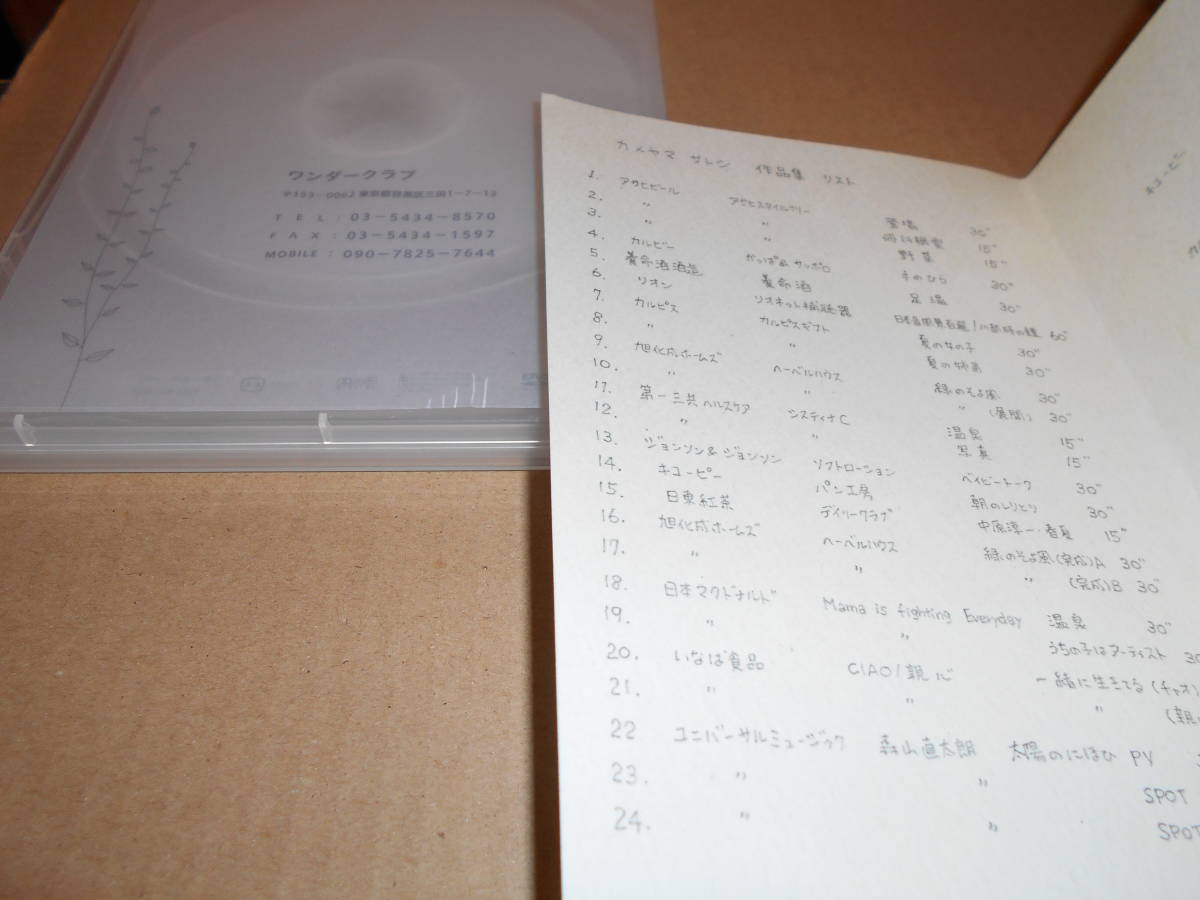 ワンダークラブ
〒153-0062 東京都目黒区三田1-7-13
TEL: 03-5434-8570
FAX: 03-5434-1597
MOBILE: 090-7825-7644
カメヤマ サトシ 作品集 リスト
1. アサヒビール アサヒスタイルフリー 登場 30"
2. 〃 〃 15"
3. 〃 〃 野草 15"
4. カルビー かっぱ& サッポロ 手のひら 30"
5. 養命酒酒造 養命酒 足湯 30"
6. リオン リオネット補聴器 日本音風景百選/川越時の鐘 60"
7. カルピス カルピスギフト 夏の女の子 30"
8. 〃 〃 夏の姉弟 30"
9. 旭化成ホームズ ヘーベルハウス 緑のそよ風 30"
10. 〃 〃 〃 (展開) 30"
11. 第一三共ヘルスケア システィナC 温泉 15"
12. 〃 〃 写真 15"
13. ジョンソン&ジョンソン ソフトローション ベイビートーク 30"
14. キユーピー パン工房 朝のしりとり 30"
15. 日東紅茶 デイリークラブ 中原淳一・春夏 15"
16. 旭化成ホームズ ヘーベルハウス 緑のそよ風(完成)A 30"
17. 〃 〃 〃 (完成)B 30"
18. 日本マクドナルド Mama is fighting Everyday 温泉 30"
19. 〃 〃 うちの子はアーティスト 30
20. いなば食品 CIAO/親心 一緒に生きてる(チャオ)
21. 〃 〃 〃
22 ユニバーサルミュージック 森山直太朗 太陽のにほひ PV
23. 〃 〃 SPOT
24. 〃 〃 SPOT
キユーピー